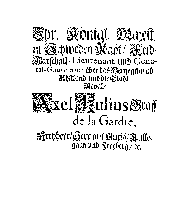 Ihr. Königl. Mayest.
in Schweden Raht / Feld-
Marschall-Lieutenant und Gene-
ral-Gouverneur über das Hertzogthumb
Ehstland und die Stadt
Reval /
Axel Julius Graff
de la Gardie,
Freyherr / Herr auf